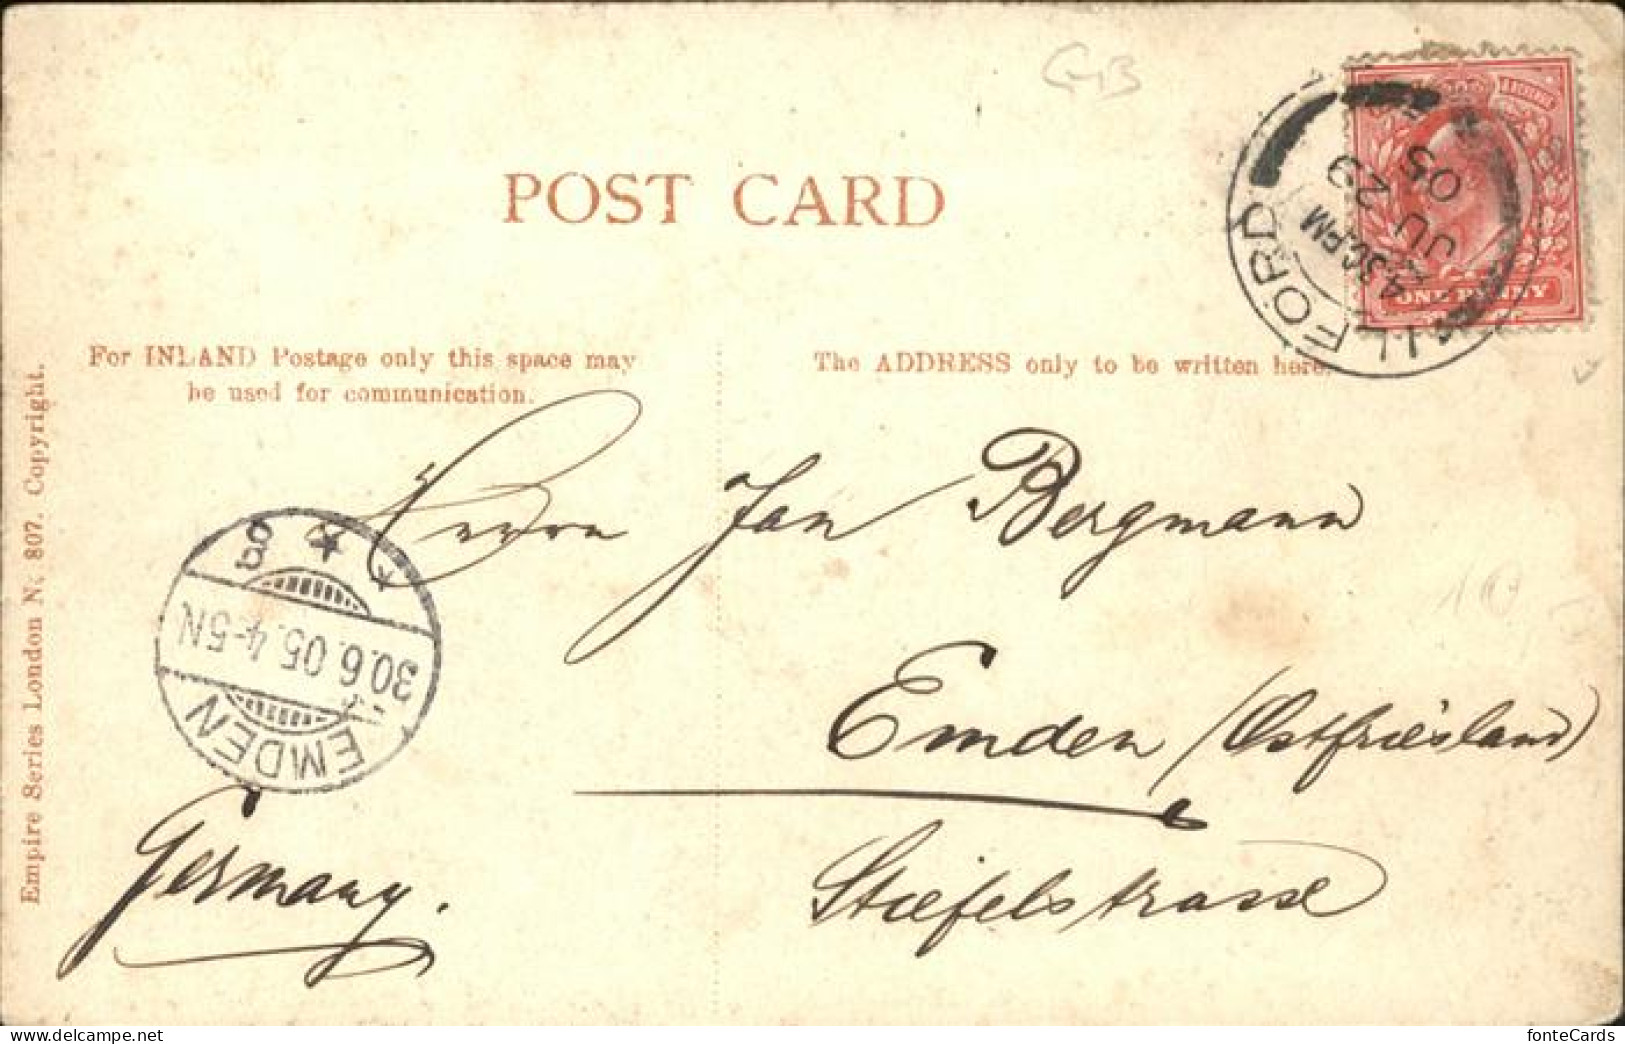 GB
POST CARD
ILFORD
4.30 PM
JU 29
05
ONE PENNY
For INLAND Postage only this space may
be used for communication.
The ADDRESS only to be written here.
Empire Series London No. 807. Copyright.
Herrn Jan Bergmann
Emden (Ostfriesland)
Stiefelstrasse
Germany.
EMDEN
30.6.05.4-5N
10
www.delcampe.net
fonteCards